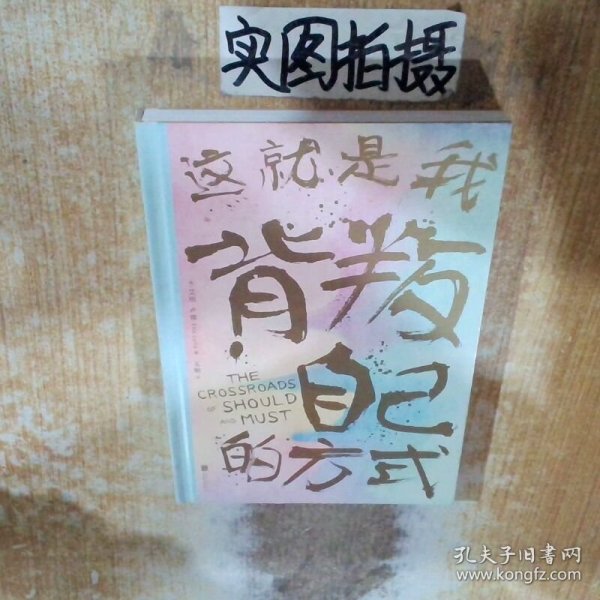 实图拍摄
这就是我
背叛
自己
的方式
THE
CROSSROADS
OF SHOULD
AND MUST
孔夫子旧书网
www.kongfz.com